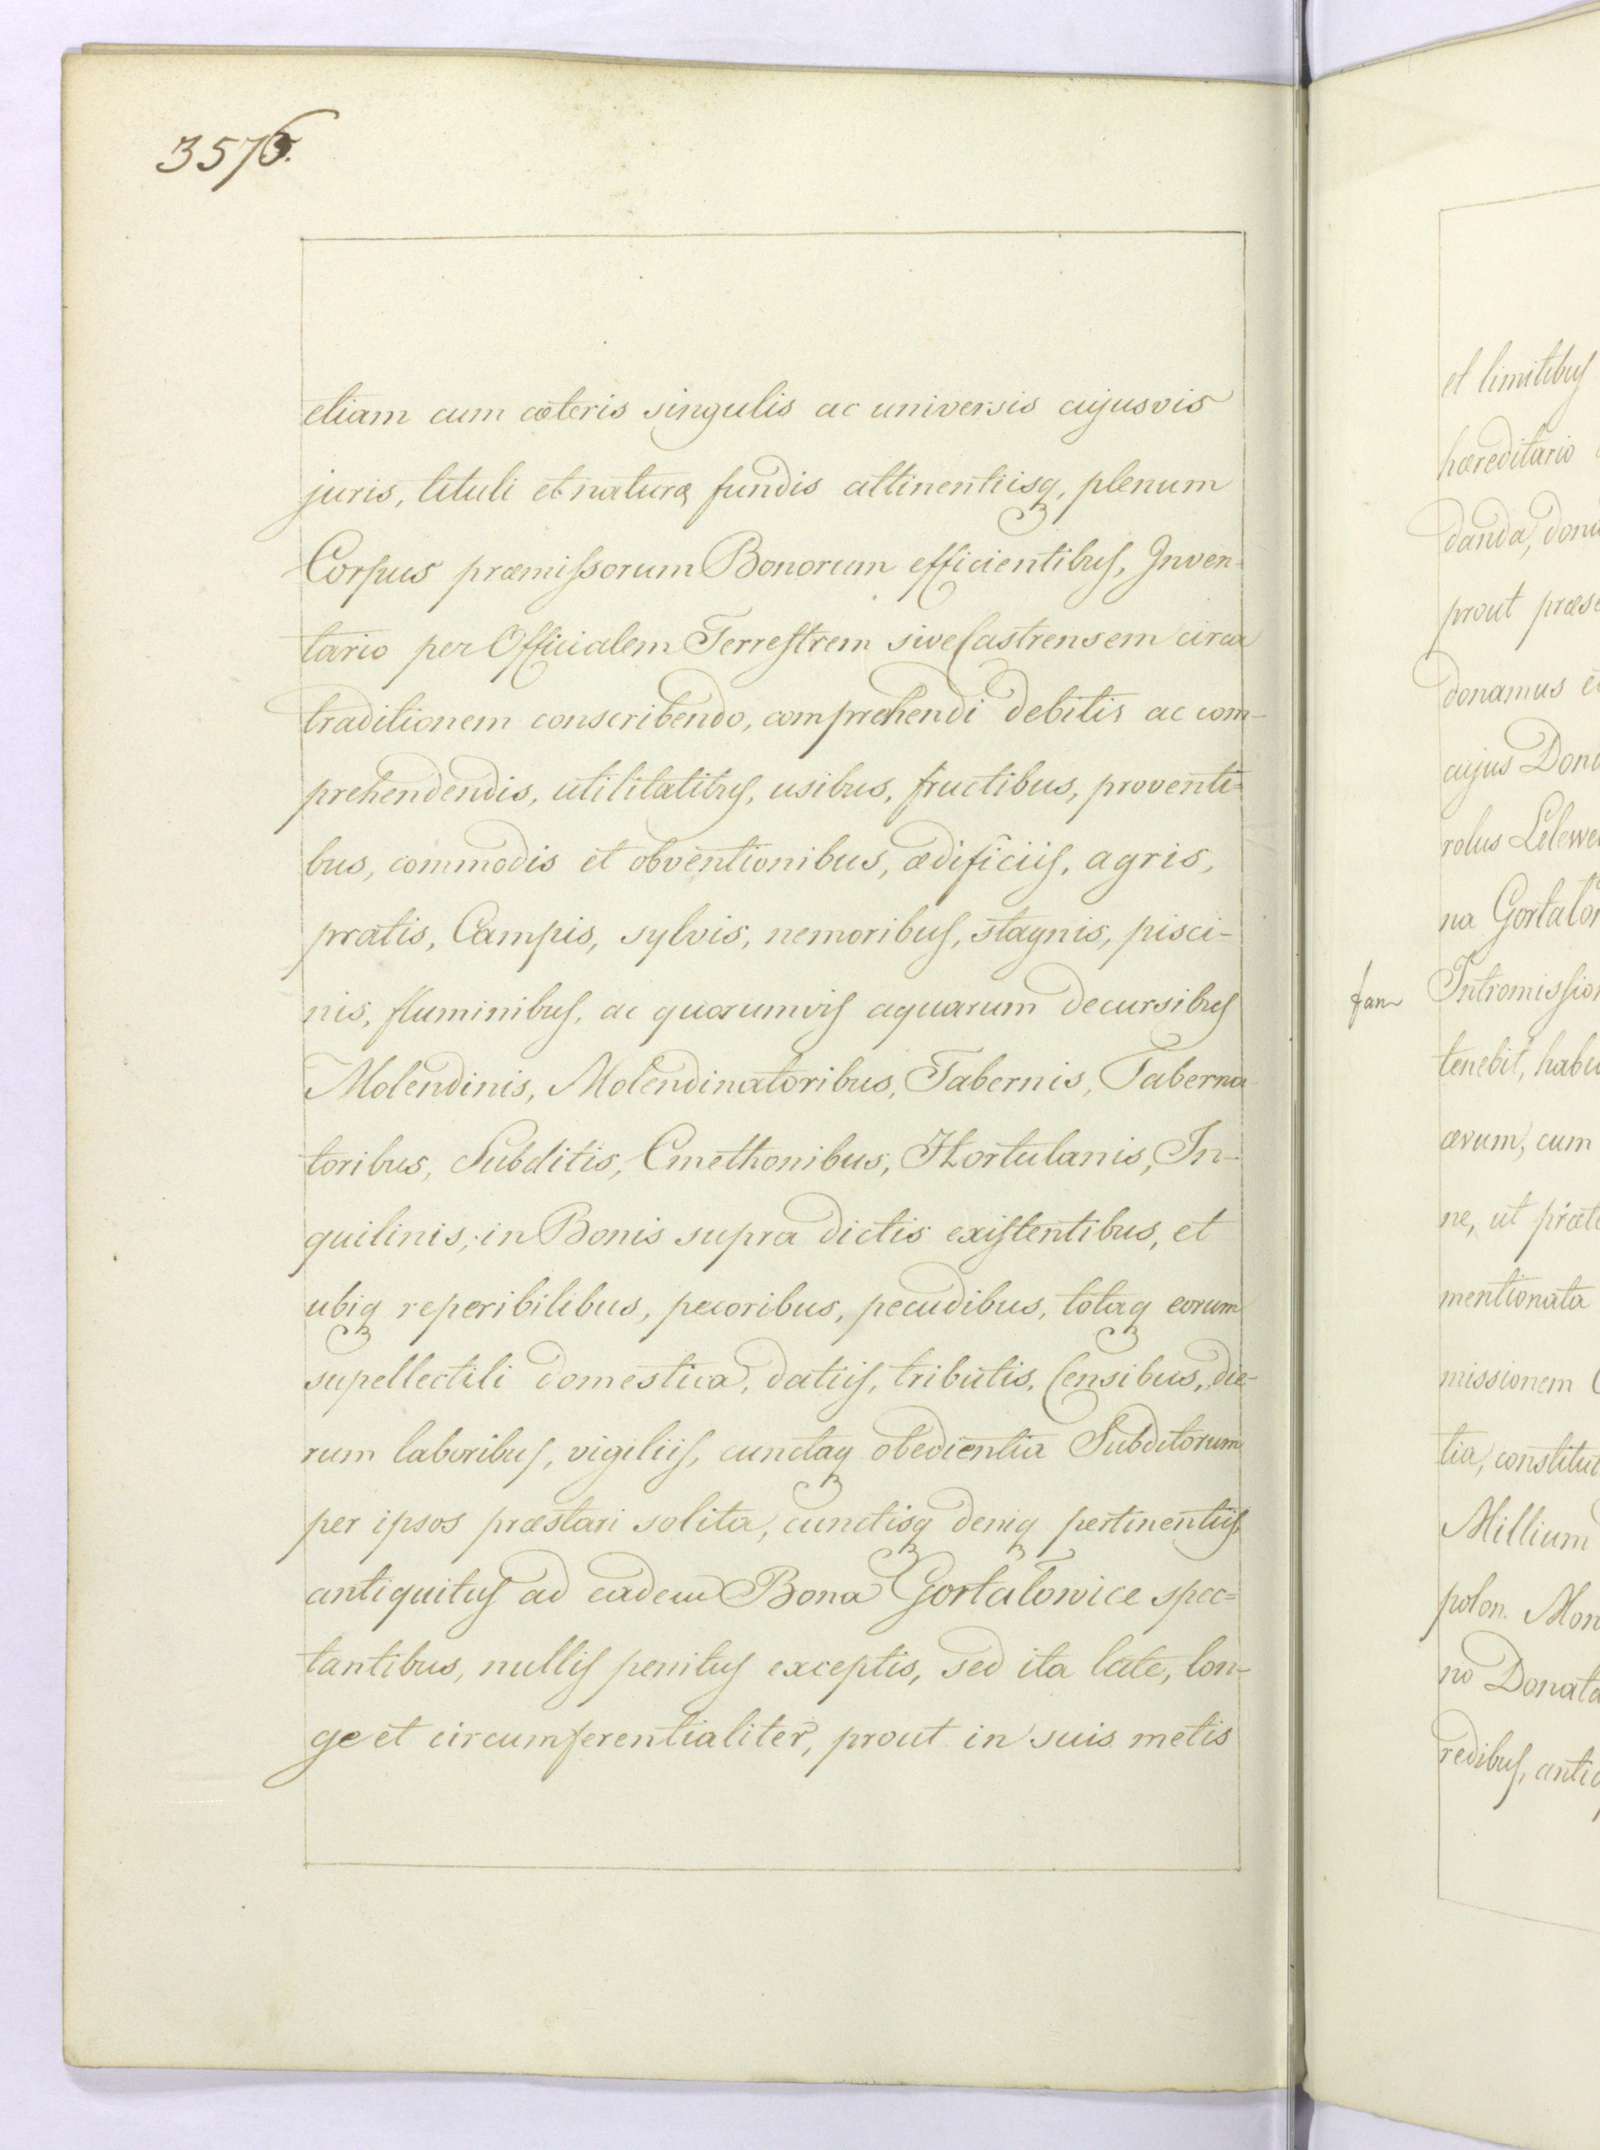 3576.
etiam cum cæteris singulis ac universis cujusvis
juris, tituli et naturæ fundis attinentiisq, plenum
Corpus præmissorum Bonorum efficientibus, Inven-
tario per Officialem Terrestrem sive Castrensem circa
traditionem conscribendo, comprehendi debitis ac com-
prehendendis, utilitatibus, usibus, fructibus, proventi-
bus, commodis et obventionibus, ædificiis, agris,
pratis, Campis, sylvis, nemoribus, stagnis, pisci-
nis, fluminibus, ac quorumvis aquarum decursibus
Molendinis, Molendinatoribus, Tabernis, Taberna
toribus, Subditis, Cmethonibus, Hortulanis, In-
quilinis, in Bonis supra dictis existentibus, et
ubiq reperibilibus, pecoribus, pecudibus, totaq eorum
supellectili domestica, datiis, tributis, Censibus, die-
rum laboribus, vigiliis, cunctaq obedientia Subditorum
per ipsos præstari solita, cunctisq deniq pertinentiis
antiquitus ad eadem Bona Gortatowice spec-
tantibus, nullis penitus exceptis, sed ita late, lon-
ge et circumferentialiter, prout in suis metis
et limitibus
hæreditario
danda,
prout
donamus
cujus
rolus
na
fan
Intromission
tenebit,
ævum, cum
ne, ut
mentionata
missionem
tia,
Millium
polon.
no
redibus,